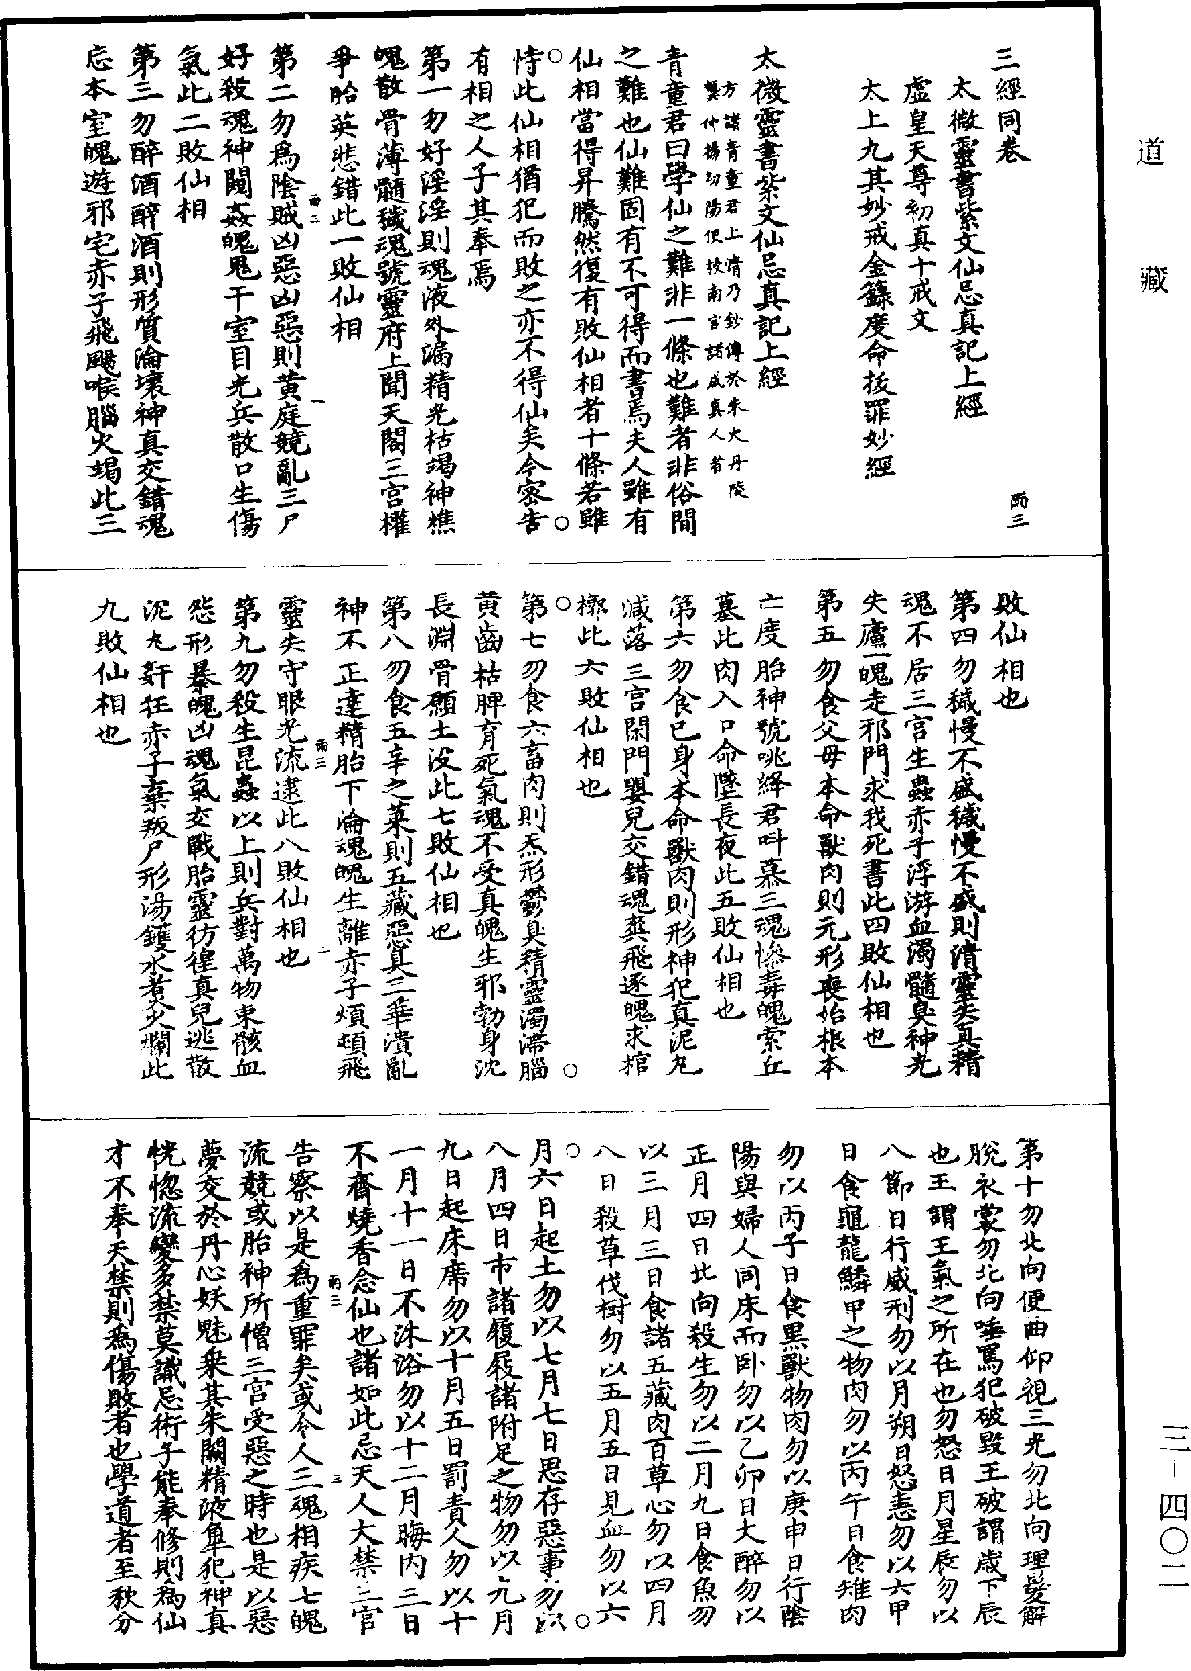 道藏
三經同卷
雨三
太微靈書紫文仙忌真記上經
虛皇天尊初真十戒文
太上九真妙戒金籙度命拔罪妙經
太微靈書紫文仙忌真記上經
方諸青童君上清乃鈔傳於朱火丹陵
龔仲陽幼陽使授南宮諸成真人者
青童君曰學仙之難非一條也難者非俗間
之難也仙難固有不可得而書焉夫人雖有
仙相當得昇騰然復有敗仙相者十條若雖
恃此仙相猶犯而敗之亦不得仙矣今密告
有相之人子其奉焉
第一勿好淫淫則魂液外漏精光枯竭神樵
魄散骨薄髓穢魂號靈府上聞天閣三宮權
爭胎英悲錯此一敗仙相
第二勿為陰賊凶惡凶惡則黃庭競亂三尸
好殺魂神闘姦魄鬼干室目光兵散口生傷
氣此二敗仙相
第三勿醉酒醉酒則形質淪壞神真交錯魂
忘本室魄遊邪宅赤子飛颺喉腦火竭此三
敗仙相也
第四勿穢慢不盛穢慢不盛則清靈失真精
魂不居三宮生蟲赤子浮游血濁髓臭神光
失廬一魄走邪門求我死書此四敗仙相也
第五勿食父母本命獸肉則元形喪始根本
亡度胎神號咷絳君叫慕三魂慘毒魄索丘
墓此肉入口命墜長夜此五敗仙相也
第六勿食己身本命獸肉則形神犯真泥丸
減落三宮閉門嬰兒交錯魂爽飛逐魄求棺
槨此六敗仙相也
第七勿食六畜肉則炁形鬱臭精靈濁滯腦
黃齒枯脾育死氣魂不受真魄生邪勃身沈
長淵骨顯土沒此七敗仙相也
第八勿食五辛之菜則五藏惡真三華潰亂
神不正達精胎下淪魂魄生離赤子煩頓飛
靈失守眼光流逮此八敗仙相也
第九勿殺生昆蟲以上則兵對萬物束骸血
怨形暴魄凶魂氣交戰胎靈彷徨真兒逃散
泥丸奸狂赤子棄叛尸形湯鑊水煮火爛此
九敗仙相也
第十勿北向便曲仰視三光勿北向理髮解
脫衣裳勿北向唾罵犯破毀王破謂歲下辰
也王謂王氣之所在也勿怒日月星辰勿以
八節日行威刑勿以月朔日怒恚勿以六甲
日食黿龍鱗甲之物肉勿以丙午日食雉肉
勿以丙子日食黑獸物肉勿以庚申日行陰
陽與婦人同床而卧勿以乙卯日大醉勿以
正月四日北向殺生勿以二月九日食魚勿
以三月三日食諸五藏肉百草心勿以四月
八日殺草伐樹勿以五月五日見血勿以六
月六日起土勿以七月七日思存惡事勿以
八月四日市諸履屐諸附足之物勿以九月
九日起床席勿以十月五日罰責人勿以十
一月十一日不沐浴勿以十二月晦內三日
不齋燒香念仙也諸如此忌天人大禁三官
告察以是為重罪矣或令人二魂相疾七魄
流競或胎神所憎三宮受惡之時也是以惡
夢交於丹心妖魅乗其朱闕精液隼犯神真
恍惚流變多禁莫識忌術子能奉修則為仙
才不奉天禁則為傷敗者也學道者至秋分
三-四〇二